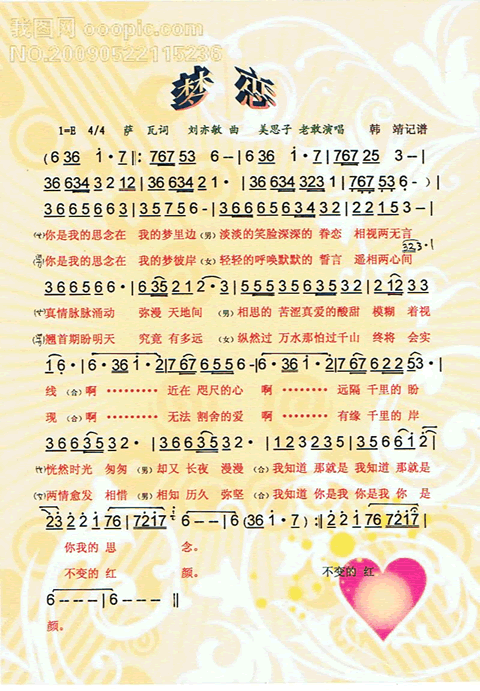 我图网 ooopic.com
NO.20090522115236
梦 恋
1=E 4/4 萨 瓦词 刘亦敏 曲 美思子 老敢演唱 韩 靖记谱
(6 36 i·7|: 767 53 6-|6 36 i·7|767 25 3-|
36 634 3 2 12|36 634 2 1·|36 634 323 1|767 25 6-)|
3 6 6 5 6 6 3|3 5 7 5 6-|3 6 6 6 5 6 3 4|3 2 2 1 5 3-|
你是我的思念在 我的梦里边 (男)淡淡的笑脸深深的 眷恋 相视两无言
你是我的思念在 我的梦彼岸 (女)轻轻的呼唤默默的 誓言 遥相两心间
真情脉脉涌动 弥漫 天地间 (男)相思的 苦涩真爱的酸甜 模糊 着视
翘首期盼明天 究竟 有多远 (女)纵然过 万水那怕过千山 终将 会实
线 (合)啊 ……… 近在 咫尺的心 啊 ……… 远隔 千里的 盼
现 (合)啊 ……… 无法 割舍的爱 啊 ……… 有缘 千里的 岸
3 6 6 3 5 3 2·|3 6 6 3 5 3 2·|1 2 3 2 3 5|3 5 6 6 i 2|
恍然时光 匆匆 (男)却又 长夜 漫漫 (合)我知道 那就是 我知道 那就是
两情愈发 相惜 (男)相知 历久 弥坚 (合)我知道 你是我 你是我 你 是
你我的 思 念。
不变的 红 颜。 不变的 红
6---|6---‖
颜。